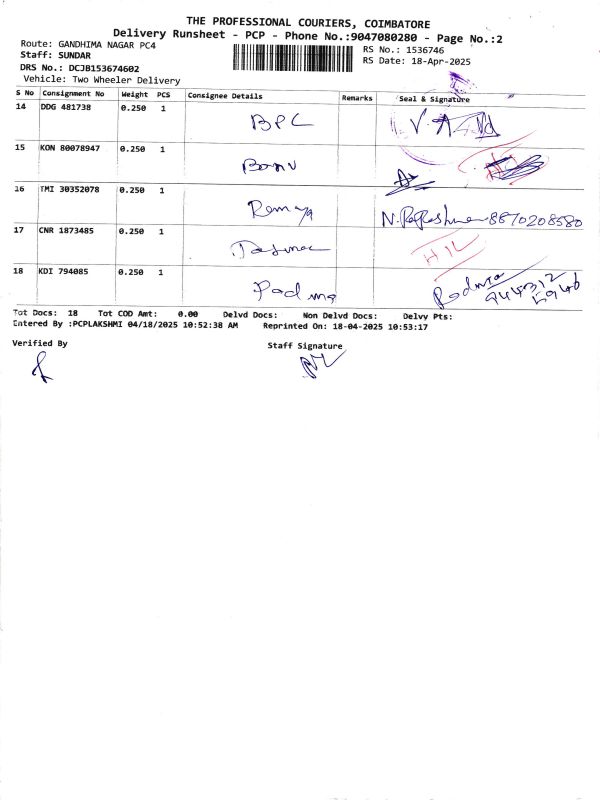 THE PROFESSIONAL COURIERS, COIMBATORE
Delivery Runsheet - PCP - Phone No.:9047080280 - Page No.:2
Route: GANDHIMA NAGAR PC4
RS No.: 1536746
Staff: SUNDAR
RS Date: 18-Apr-2025
DRS No.: DCJB153674602
Vehicle: Two Wheeler Delivery
S No Consignment No Weight PCS Consignee Details Remarks Seal & Signature
14 DDG 481738 0.250 1 BPC
15 KON 80078947 0.250 1 Banu
16 TMI 30352078 0.250 1 Remya 8870208580
17 CNR 1873485 0.250 1 HIL
18 KDI 794085 0.250 1 Padma Padma
Tot Docs: 18 Tot COD Amt: 0.00 Delvd Docs: Non Delvd Docs: Delvy Pts:
Entered By :PCPLAKSHMI 04/18/2025 10:52:38 AM Reprinted On: 18-04-2025 10:53:17
Verified By
Staff Signature